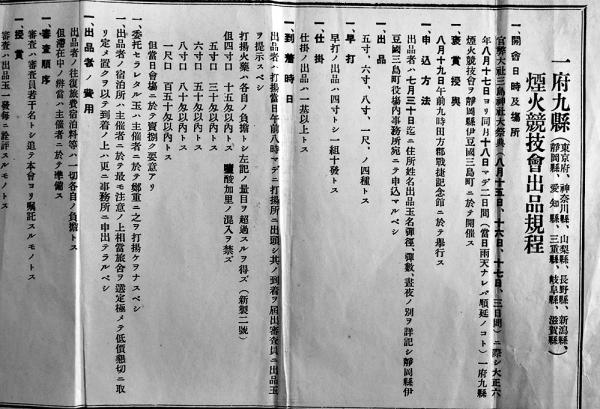 一府九縣
(東京府、神奈川縣、山梨縣、長野縣、新潟縣、
靜岡縣、愛知縣、三重縣、岐阜縣、滋賀縣、)
煙火競技會出品規程
一、開會日時及場所
官幣大社三島神社大祭典(八月十五日、十六日、十七日、三日間)ニ際シ大正六
年八月十七日ヨリ同月十八日マデ二日間(當日雨天ナレバ順延ノコト)一府九縣
煙火競技會ヲ靜岡縣伊豆國三島町ニ於テ開催ス
一、褒賞授與
八月十九日午前九時田方郡戰捷記念館ニ於テ擧行ス
一、申込方法
出品者ハ七月三十日迄ニ住所姓名出品玉名彈徑、彈數、晝夜ノ別ヲ詳記シ靜岡縣伊
豆國三島町役場內事務所宛ニテ申込マルベシ
一、出品
五寸、六寸、八寸、一尺、ノ四種トス
一、早打
早打ノ出品ハ四寸トシ一組十發トス
一、仕掛
仕掛ノ出品ハ一基以上トス
一、到着時日
出品者ハ打揚當日午前八時マデニ打揚所ニ出頭シ其ノ到着ヲ屆出審査員ニ出品玉
ヲ提示スベシ
打揚火藥ハ各自ノ負擔トシ左記ノ量目ヲ超過スルヲ得ズ(新製二號)
但四寸口 十五匁以內トス 鹽酸加里ノ混入ヲ禁ズ
五寸口 三十匁以內トス
六寸口 五十匁以內トス
八寸口 八十匁以內トス
一尺口 百五十匁以內トス
但當日會場ニ於テ賣捌ク要意アリ
一、委托セラレタル玉ハ主催者ニ於テ鄭重ニ之ヲ打揚ケヲナスベシ
一、出品者ノ宿泊所ハ主催者ニ於テ最モ注意ノ上相當旅舍ヲ選定極メテ低價懇切ニ取
リ定メ置クヲ以テ到着ノ上ハ更ニ事務所ニ申出テラルベシ
一、出品者ノ費用
出品者ノ往復旅費宿泊料等ハ一切各自ノ負擔トス
但滯在中ノ辨當ハ主催者ニ於テ準備ス
一、審査順序
審査ハ審査員若干名トシ追テ本會ヨリ囑託スルモノトス
一、授賞
審査ハ出品玉一發每ニ詮評スルモノトス